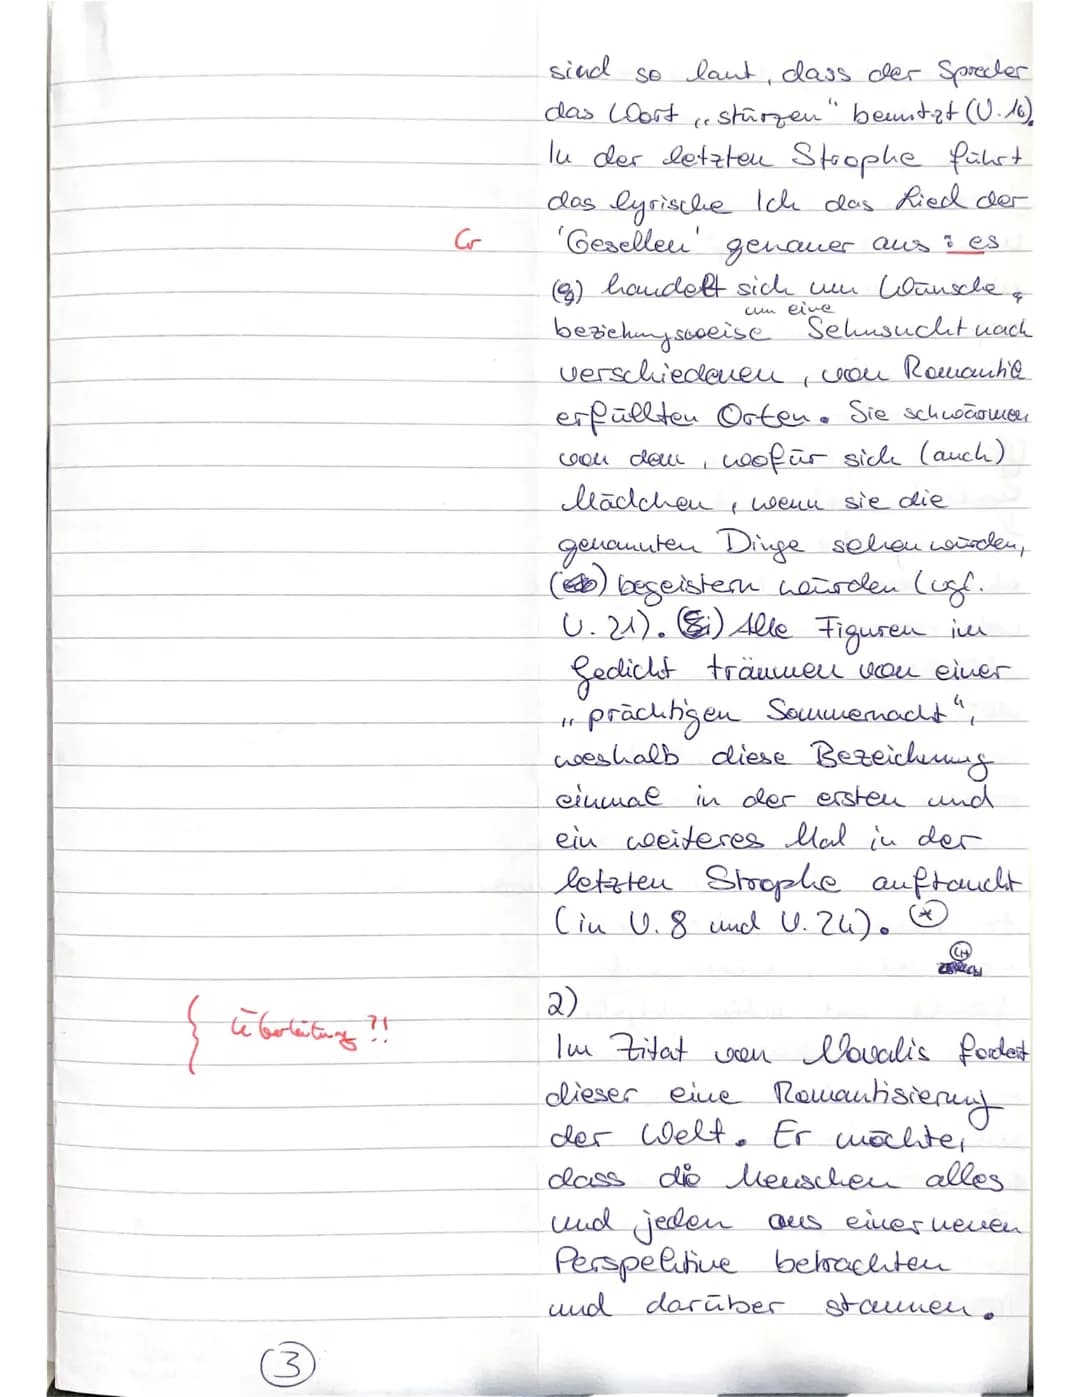 sind so laut, dass der Sprecher
das Wort „stürzen“ benutzt (V. 16).
In der letzten Strophe führt
das lyrische Ich das Lied der
Gr
'Gesellen' genauer aus: es
handelt sich um Wünsche,
um eine
beziehungsweise Sehnsucht nach
verschiedenen, von Romantik
erfüllten Orten. Sie schwärmen
von dem, wofür sich (auch)
Mädchen, wenn sie die
genannten Dinge sehen würden,
begeistern würden (vgl.
V. 21). Alle Figuren im
Gedicht träumen von einer
„prächtigen Sommernacht“,
weshalb diese Bezeichnung
einmal in der ersten und
ein weiteres Mal in der
letzten Strophe auftaucht
(in V. 8 und V. 24). (*)
2)
Überleitung?!
Im Zitat von Novalis fordert
dieser eine Romantisierung
der Welt. Er möchte,
dass die Menschen alles
und jeden aus einer neuen
Perspektive betrachten
und darüber staunen.
3